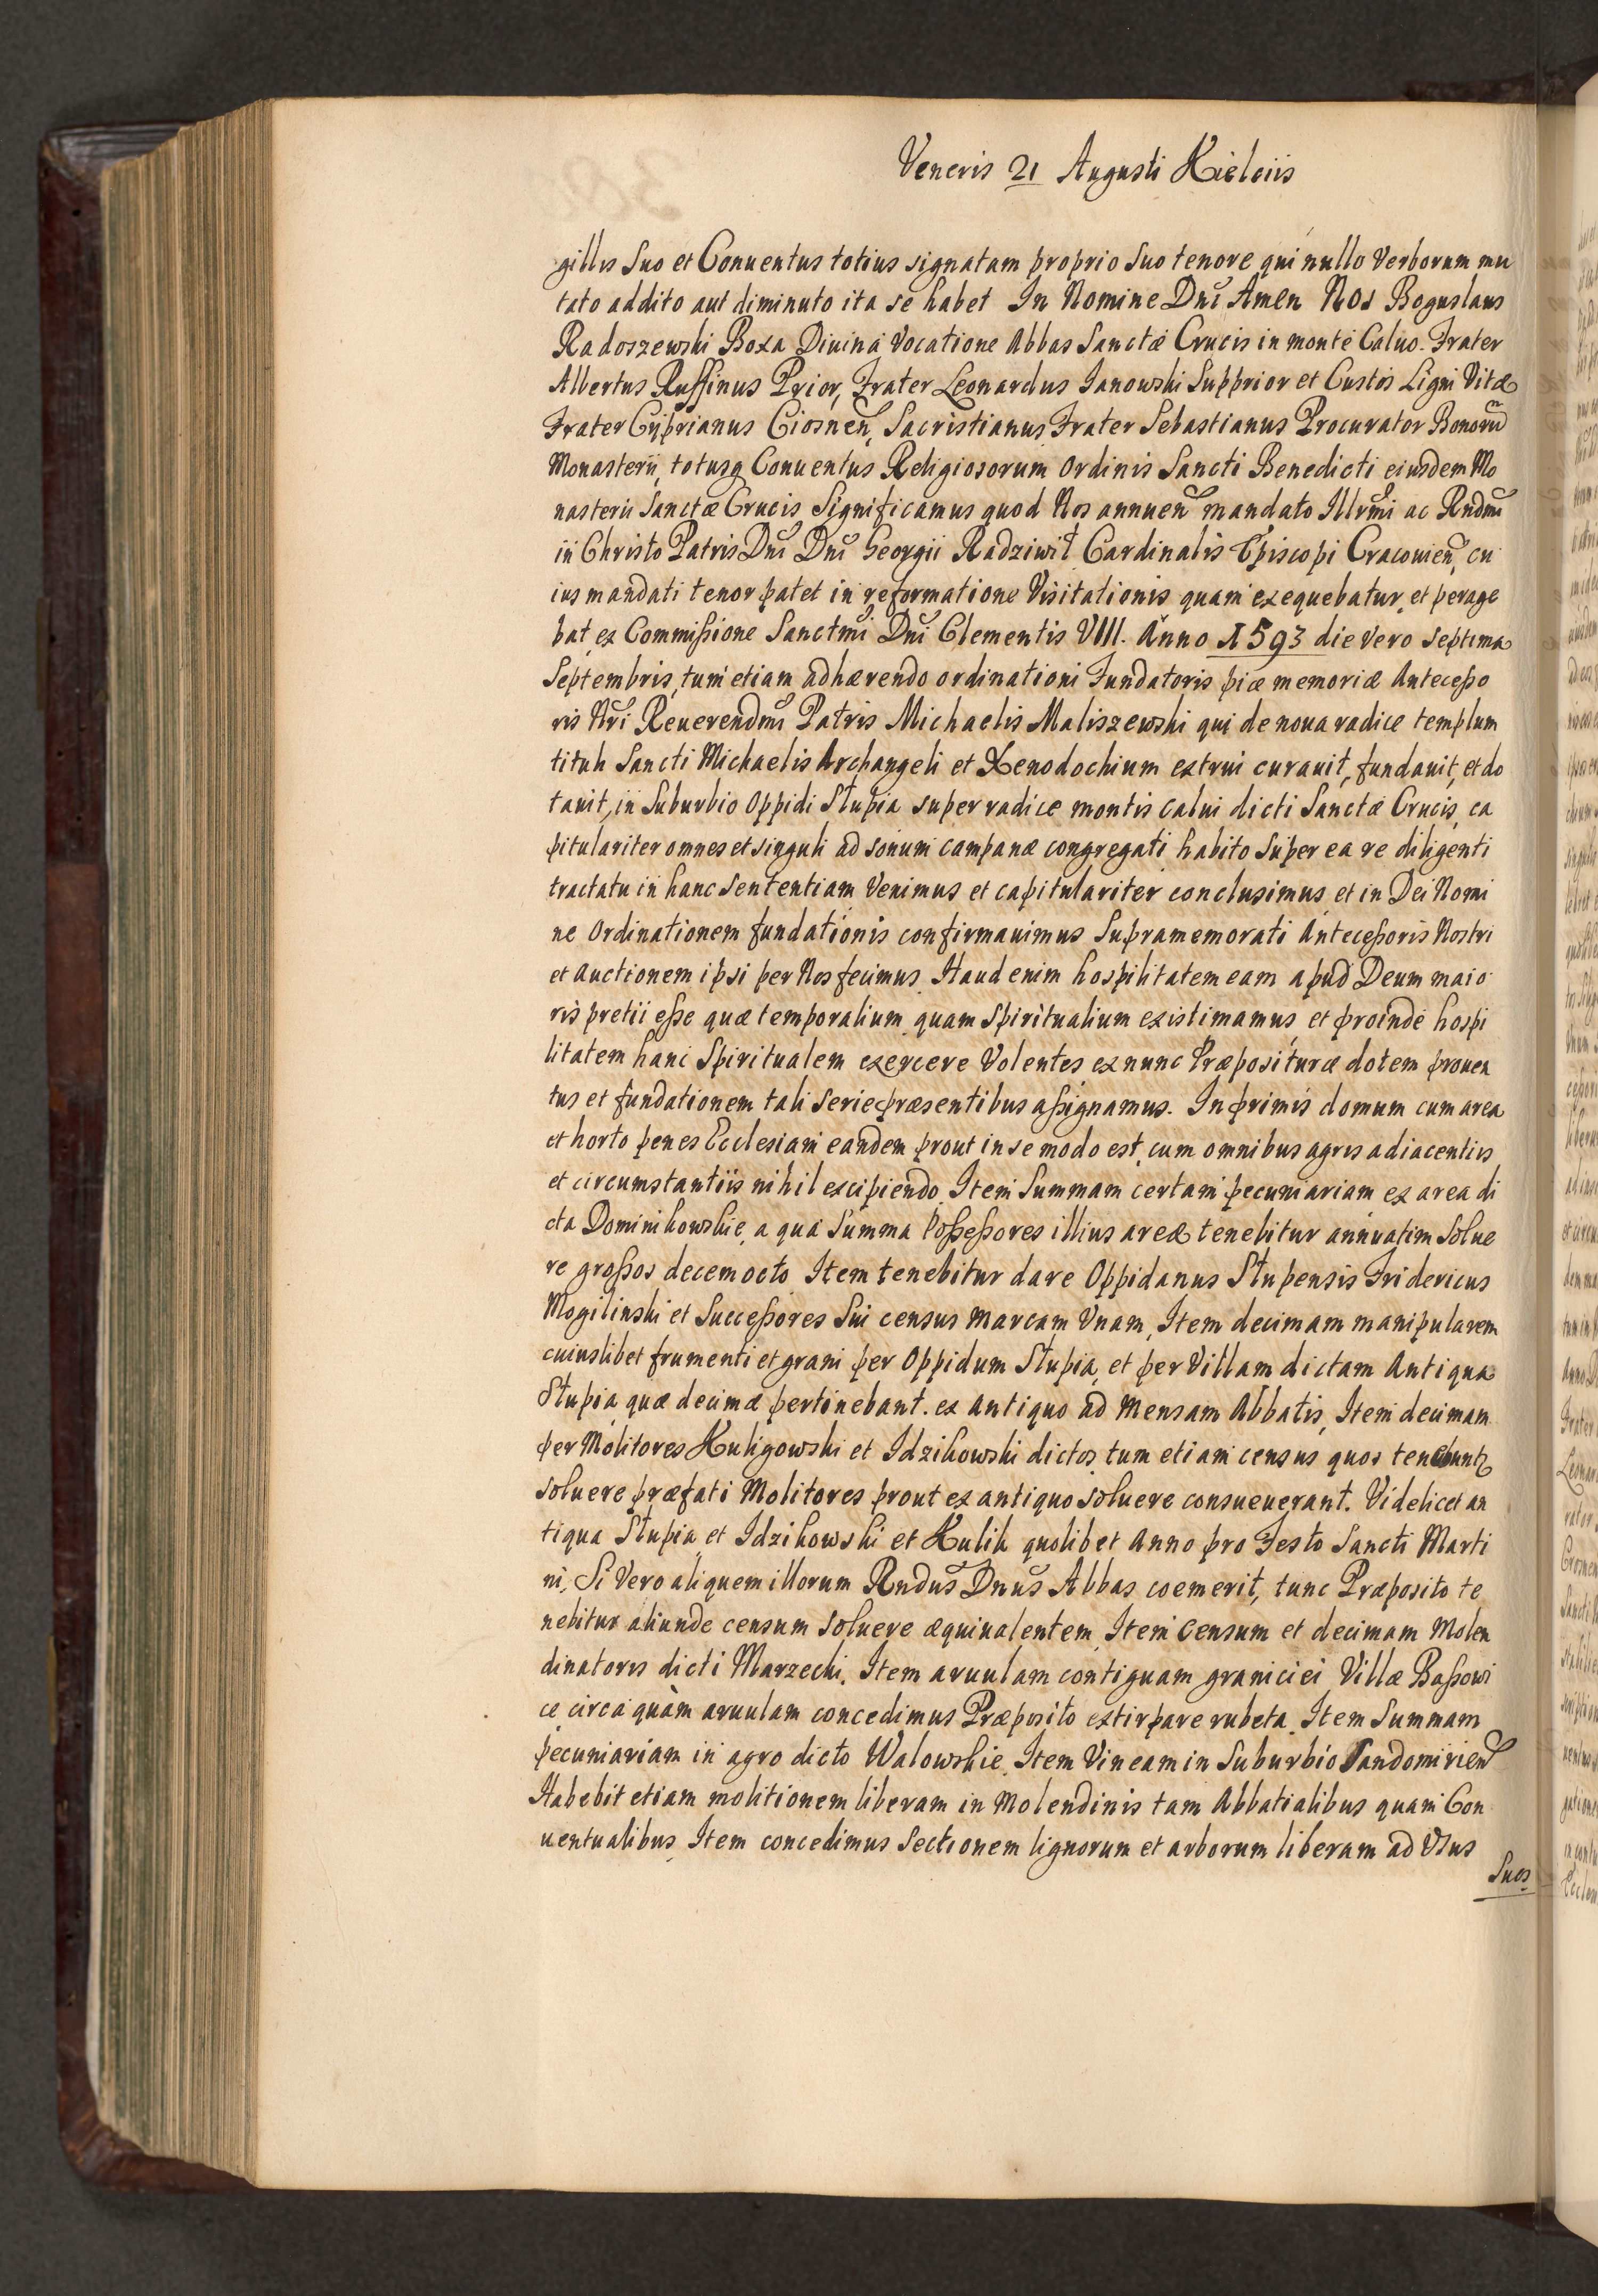 Veneris 21 Augusti Kielciis
gillis suo et Conuentus totius signatam proprio suo tenore qui nullo Verborum mu
tato addito aut diminuto ita se habet In Nomine Dni Amen Nos Boguslaus
Radoszewski Boxa Diuina Vocatione Abbas Sanctæ Crucis in monte Caluo. Frater
Albertus Ruffinus Prior, Frater Leonardus Janowski Supprior et Custos Ligni Vitæ
Frater Cyprianus Ciosnen, Sacristianus, Frater Sebastianus Procurator Bonorũ
Monasterii, totusq Conuentus Religiosorum Ordinis Sancti Benedicti eiusdem Mo
nasterii Sanctæ Crucis Significamus quod Nos annuen mandato Illrmi ac Rndmi
in Christo Patris Dni Dni Georgii Radziwił Cardinalis Episcopi Cracouien, cu
ius mandati tenor patet in reformatione Visitationis quam exequebatur et perage
bat ex Commißione Sanctmi Dni Clementis VIII. Anno 1593 die vero septima
Septembris, tum etiam adhærendo ordinationi Fundatoris piæ memoriæ Anteceßo
ris Nri Reuerendmi Patris Michaelis Maliszewski qui de noua radice templum
tituli Sancti Michaelis Archangeli et Xenodochium extrui curauit, fundauit, et do
tauit, in Suburbio Oppidi Słupia super radice montis calui dicti Sanctæ Crucis, ca
pitulariter omnes et singuli ad sonum campanæ congregati habito super ea re diligenti
tractatu in hanc sententiam Venimus et capitulariter conclusimus et in Dei Nomi
ne Ordinationem fundationis confirmauimus Supramemorati Anteceßoris Nostri
et auctionem ipsi per Nos fecimus. Haud enim hospilitatem eam apud Deum maio
ris pretii eße quæ temporalium quam Spiritualium existimamus et proinde hospi
litatem hanc Spiritualem exercere Volentes ex nunc Præposituræ dotem prouen
tus et fundationem tali serie præsentibus aßignamus. In primis domum cum area
et horto penes Ecclesiam eandem prout in se modo est, cum omnibus agris adiacentiis
et circumstantiis nihil excipiendo, Item Summam certam pecuniariam ex area di
cta Dominikowskie, a qua Summa Poßeßores illius areæ tenebitur annuatim Solue
re großos decem octo Item tenebitur dare Oppidanus Stupensis Fridericus
Mogilinski et Succeßores Sui census marcam Vnam, Item decimam manipularem
cuiuslibet frumenti et grani per Oppidum Słupia, et per Villam dictam Antiqua
Słupia quæ decimæ pertinebant ex antiquo ad Mensam Abbatis, Item decimam
per Molitores Kuligowski et Idzikowski dictos tum etiam census quos tenebunt
soluere præfati Molitores prout ex antiquo soluere consueuerant. Videlicet an
tiqua Słupia et Idzikowski et Kulik quolibet Anno pro Festo Sancti Marti
ni, Si Vero aliquem illorum Rndus Dnus Abbas coemerit, tunc Præposito te
nebitur aliunde censum soluere æquiualentem, Item Censum et decimam Molen
dinatoris dicti Marzecki. Item aruulam contiguam graniciei Villæ Baßowi
ce circa quàm aruulam concedimus Præposito extirpare rubeta. Item Summam
pecuniariam in agro dicto Walowskie. Item Vineam in Suburbio Sandomirien
Habebit etiam molitionem liberam in Molendinis tam Abbatialibus quam Con
uentualibus, Item concedimus Sectionem lignorum et arborum liberam ad Vsus
Suos